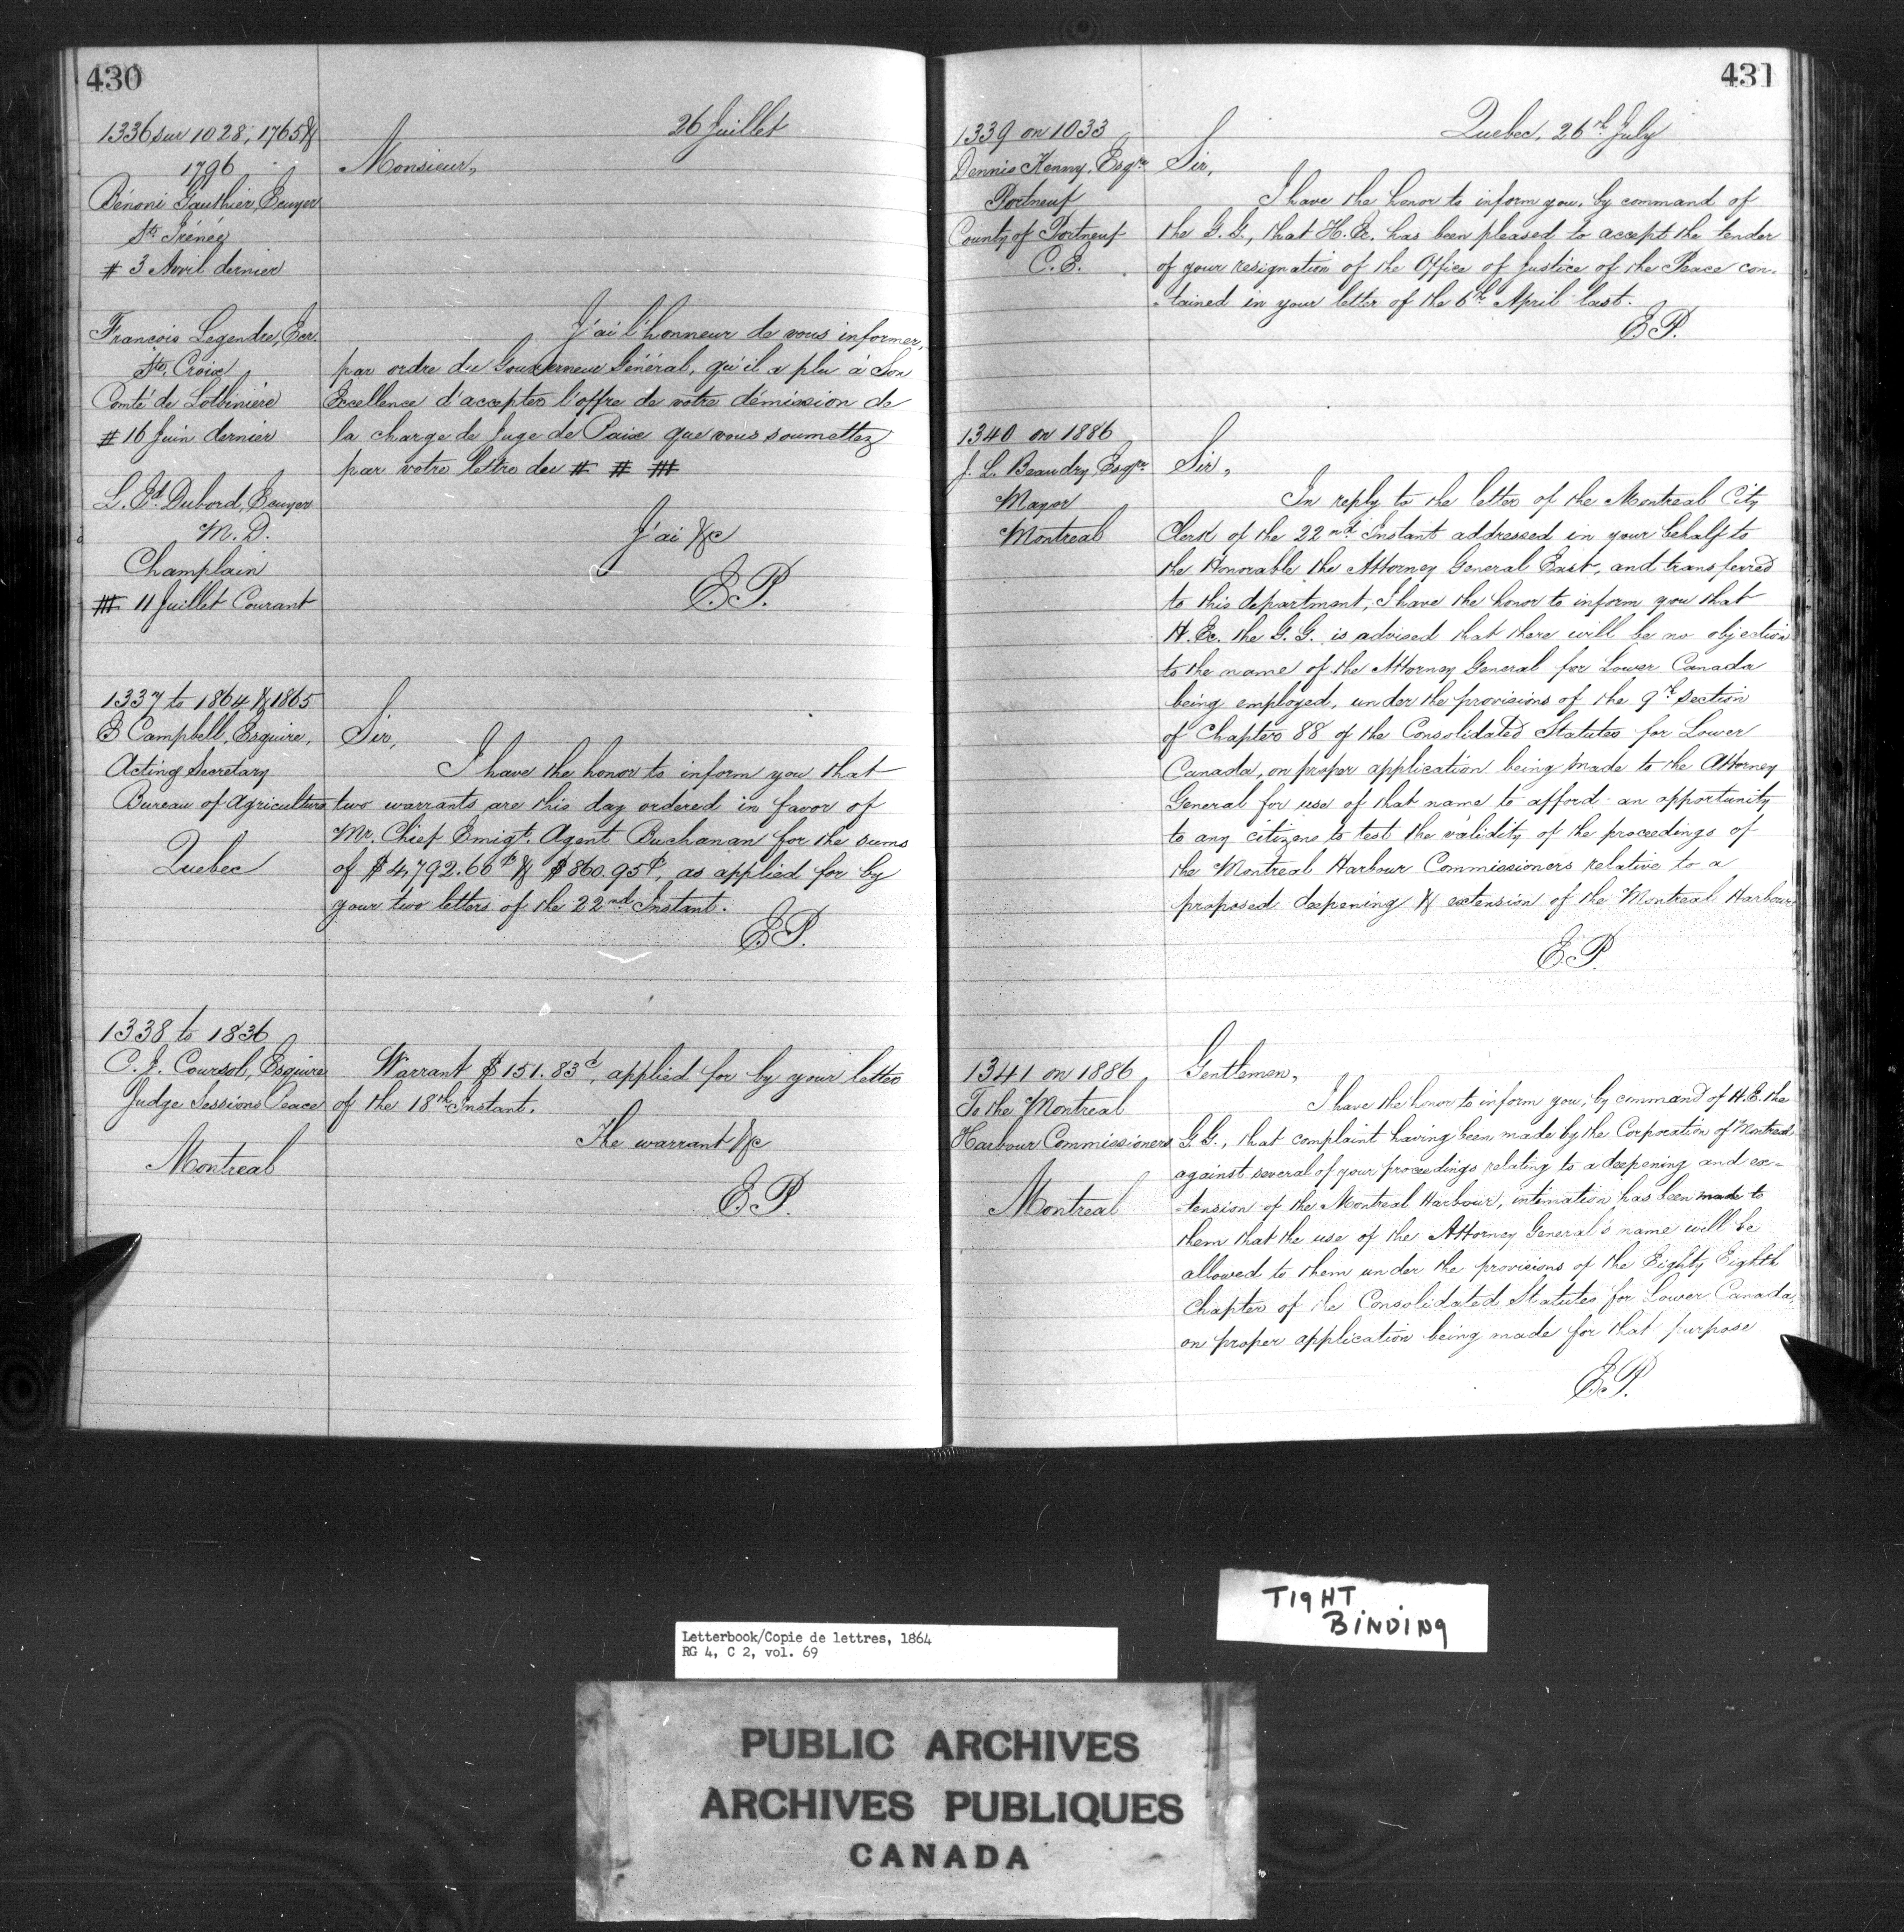 430
26 Juillet
1336 sur 1028, 1765 &
1796
Bénoni Gauthier, Ecuyer
St. Irénée
# 3 Avril dernier
Monsieur,
François Legendre, Ecr.
Ste. Croix
Comté de Lotbinière
# 16 Juin dernier
L. Ed. Dubord, Ecuyer
M. D.
Champlain
## 11 Juillet Courant
J'ai l'honneur de vous informer,
par ordre du Gouverneur Général, qu'il a plu à Son
Excellence d'accepter l'offre de votre démission de
la charge de Juge de Paix que vous soumettez
par votre lettre du # # ##
J'ai &c
E. P.
1337 to 1864 & 1865
E Campbell, Esquire,
Acting Secretary
Bureau of Agriculture
Quebec
Sir,
I have the honor to inform you that
two warrants are this day ordered in favor of
Mr. Chief Emigt. Agent Buchanan for the sums
of $4,792.60 & $860.95, as applied for by
your two letters of the 22nd Instant.
E. P.
1338 to 1836
C. J. Coursol, Esquire
Judge Sessions Peace
Montreal
Warrant $151.83, applied for by your letter
of the 18th Instant.
The warrant &c
E. P.
431
Quebec, 26th July
1339 on 1033
Dennis Kenny, Esqre
Portneuf
County of Portneuf
C. E.
Sir,
I have the honor to inform you, by command of
the G. G., that H. Ex. has been pleased to accept the tender
of your resignation of the Office of Justice of the Peace con-
-tained in your letter of the 6th April last.
E. P.
1340 on 1886
J. L. Beaudry, Esqre
Mayor
Montreal
Sir,
In reply to the letter of the Montreal City
Clerk of the 22nd Instant addressed in your behalf to
the Honorable the Attorney General East, and transferred
to this department, I have the honor to inform you that
H. Ec. the G. G. is advised that there will be no objection
to the name of the Attorney General for Lower Canada
being employed, under the provisions of the 9th section
of Chapter 88 of the Consolidated Statutes for Lower
Canada, on proper application being made to the Attorney
General for use of that name to afford an opportunity
to any citizens to test the validity of the proceedings of
the Montreal Harbour Commissioners relative to a
proposed deepening & extension of the Montreal Harbour
E. P.
1341 on 1886
To the Montreal
Harbour Commissioners
Montreal
Gentlemen,
I have the honor to inform you, by command of H. E. the
G. G., that complaint having been made by the Corporation of Montreal
against several of your proceedings relating to a deepening and ex-
-tension of the Montreal Harbour, intimation has been made to
them that the use of the Attorney General's name will be
allowed to them under the provisions of the Eighty Eighth
Chapter of the Consolidated Statutes for Lower Canada,
on proper application being made for that purpose
E. P.
TIGHT
BINDING
Letterbook/Copie de lettres, 1864
RG 4, C 2, vol. 69
PUBLIC ARCHIVES
ARCHIVES PUBLIQUES
CANADA